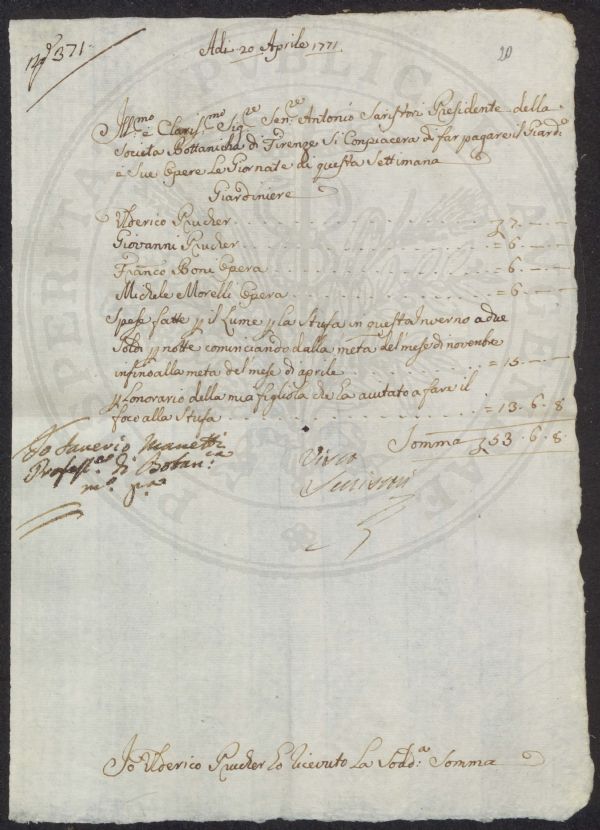 N.º 371.
Adi 20 Aprile 1771
20
Ill:mo e Claris:mo Sig:re Sen:re Antonio Saristori Presidente della
Societa Bottanicha di Firenze Si Conpiacera di far pagare il Giard:e
e Sue Opere Le Giornate di questa Settimana
Giardiniere
Uderico Prucher 7.—
Giovanni Prucher = 6.—
Franco Boni Opera = 6.—
Michele Morelli Opera = 6.—
Spese fatte p il Lume p La Stufa in questa Inverno a due
Soldi p notte cominciando dalla meta del mese di novenbre
infino alla meta del mese di aprile = 15.—
p Lonorario della mia figliola che La aiutato a fare il
foco alla Stufa = 13.6.8
Somma 53.6.8.
Io Saverio Manetti
Profess:re di Botan:ca
m:o p:a
Visto
Io Uderico Prucher Ho Ricevuto La Sodd:a Somma